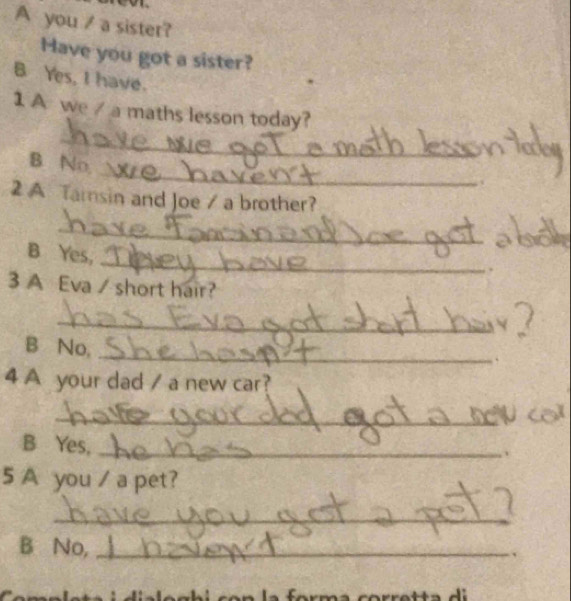 A you / a sister?
Have you got a sister?
B Yes, I have.
1 A we / a maths lesson today?
have we got a math lesson today
B No, we haven't.
2 A Tamsin and Joe / a brother?
have Tamsin and Joe got a
B Yes, They have.
3 A Eva / short hair?
has Eva got short hair?
B No, She hasn't.
4 A your dad / a new car?
have your dad got a new car
B Yes, he has.
5 A you / a pet?
have you got a pet?
B No, I haven't.
Completa i dialoghi con la forma corretta di